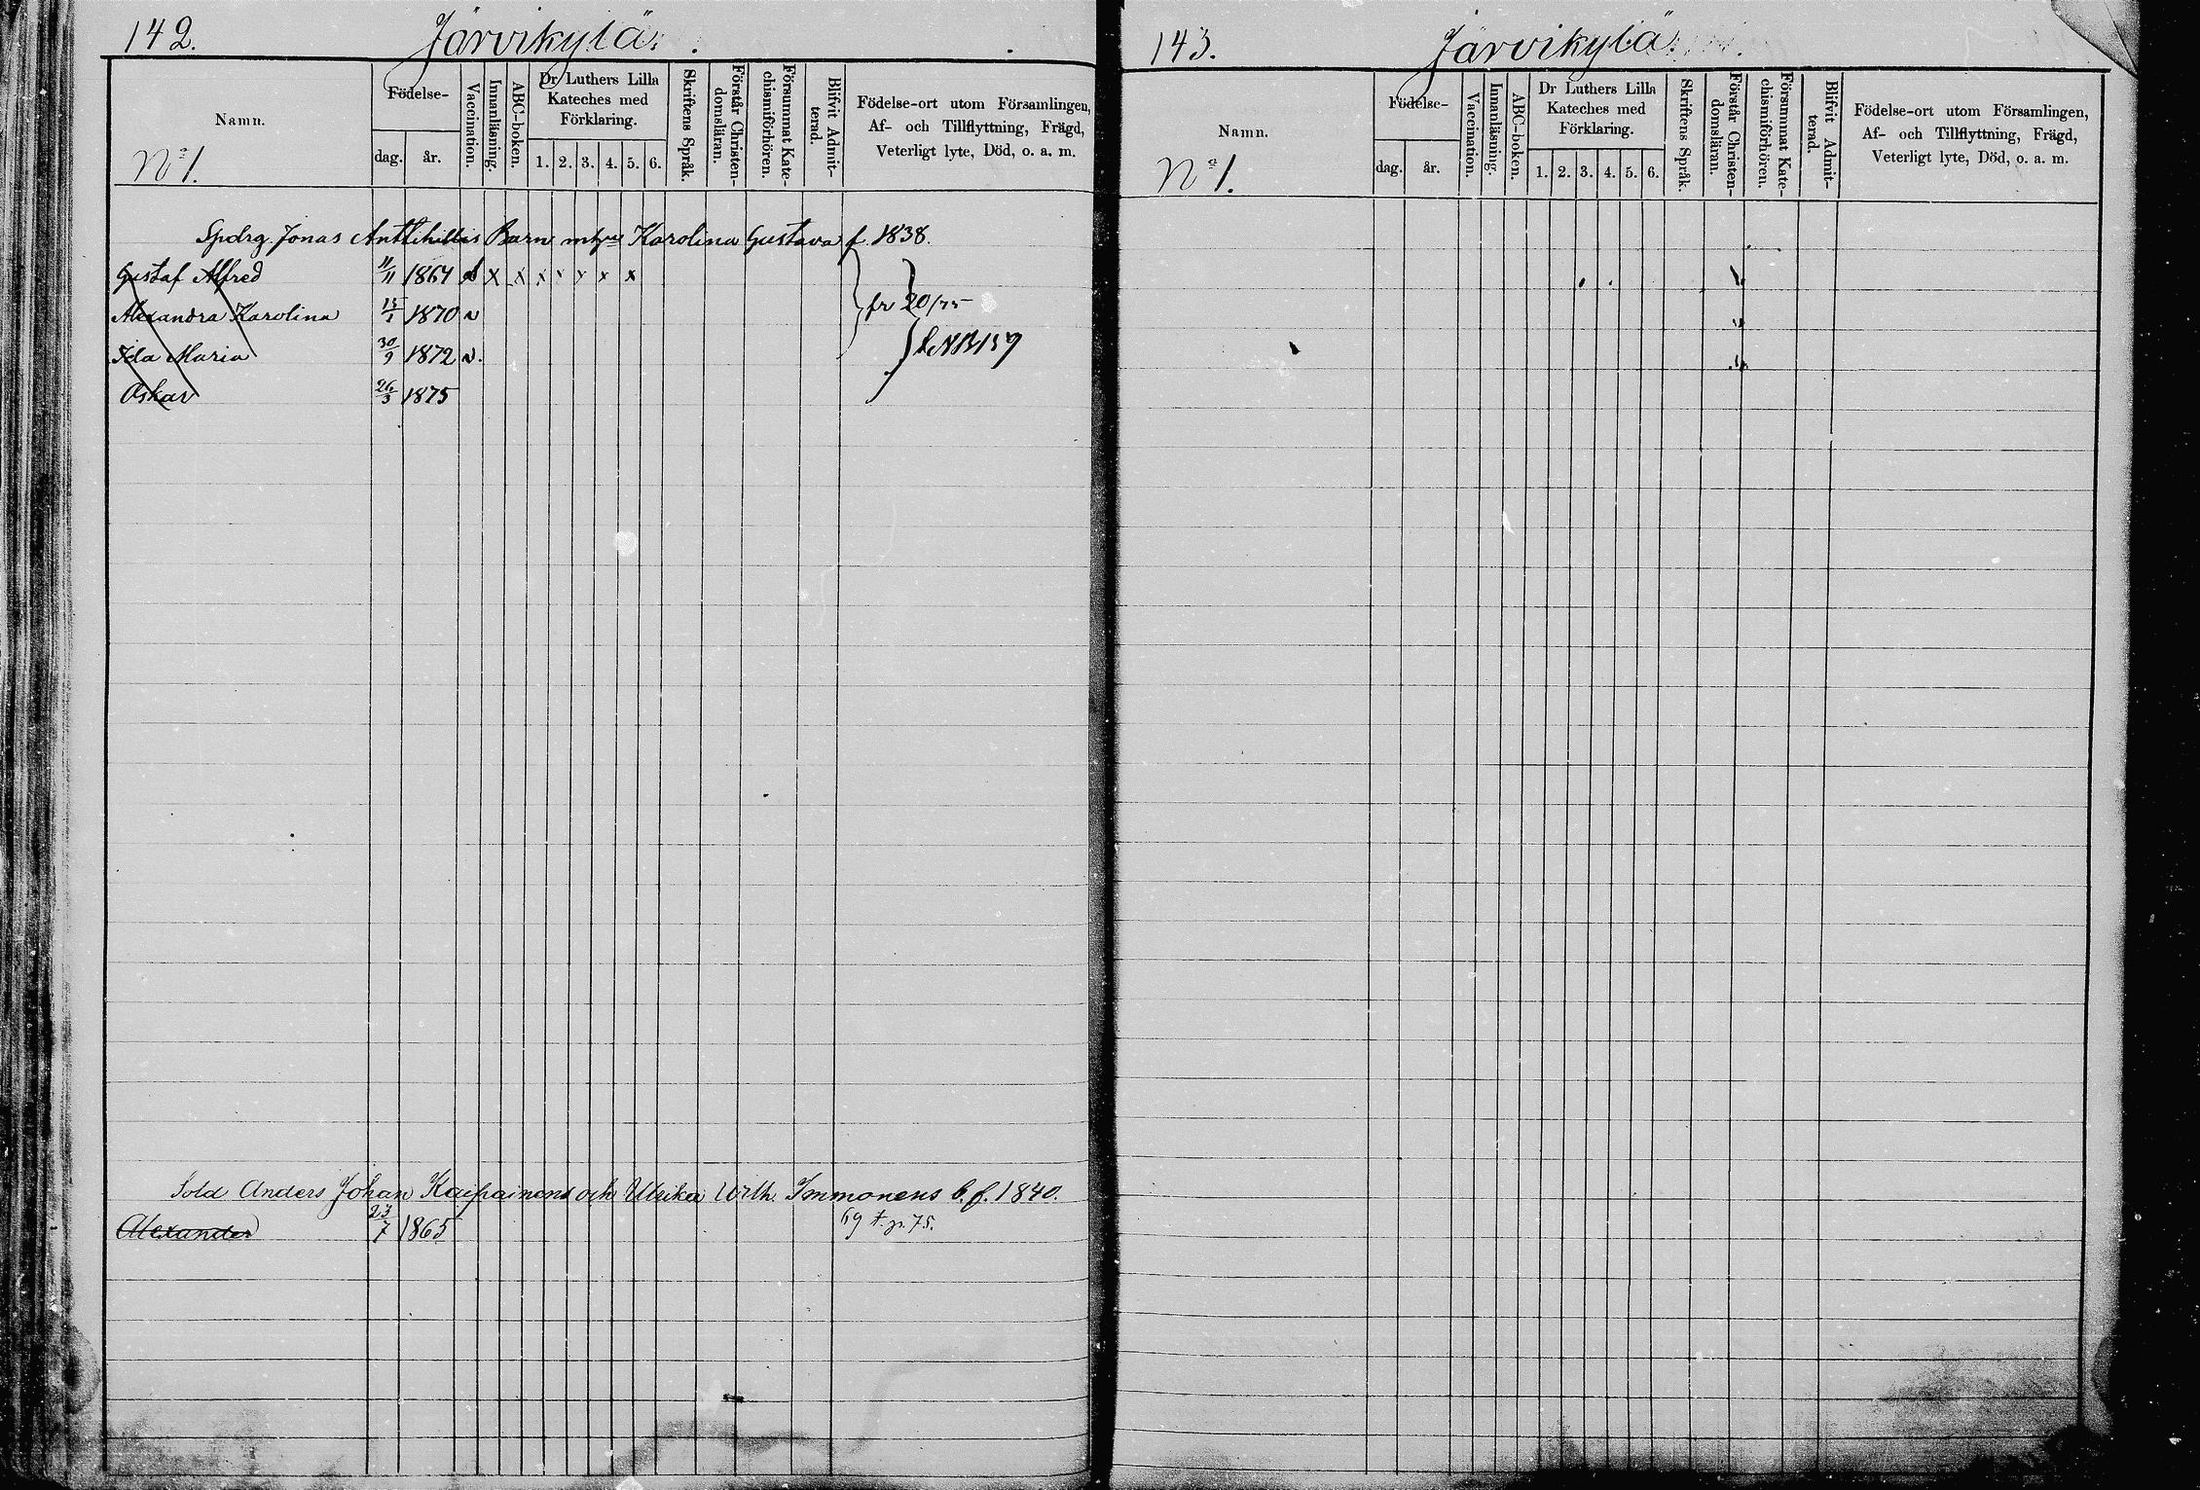 142.
Järvikylä.
Namn.
Födelse-
dag.
år.
Vaccination.
Innanläsning.
ABC-boken.
Dr Luthers Lilla
Kateches med
Förklaring.
1. 2. 3. 4. 5. 6.
Skriftens Språk.
Förstår Christen-
domsläran.
Försummat Kate-
chismiförhören.
Blifvit Admit-
terad.
Födelse-ort utom Församlingen,
Af- och Tillflyttning, Frägd,
Veterligt lyte, Död, o. a. m.
No 1.
Spdrg Jonas Barn Karolina Gustava f. 1838.
Gustaf Alfred 11/11 1867 x x x x x x x
Alexandra Karolina 1870 v
fr 20/75
Ida Maria 30/9 1872 v.
Oskar 26/3 1875
Sold Anders Johan Kaipainens och Ulrika Wilh. Immonens b. f. 1840.
Alexander 23/7 1865
143.
Järvikylä.
Namn.
Födelse-
dag.
år.
Vaccination.
Innanläsning.
ABC-boken.
Dr Luthers Lilla
Kateches med
Förklaring.
1. 2. 3. 4. 5. 6.
Skriftens Språk.
Förstår Christen-
domsläran.
Försummat Kate-
chismiförhören.
Blifvit Admit-
terad.
Födelse-ort utom Församlingen,
Af- och Tillflyttning, Frägd,
Veterligt lyte, Död, o. a. m.
No 1.